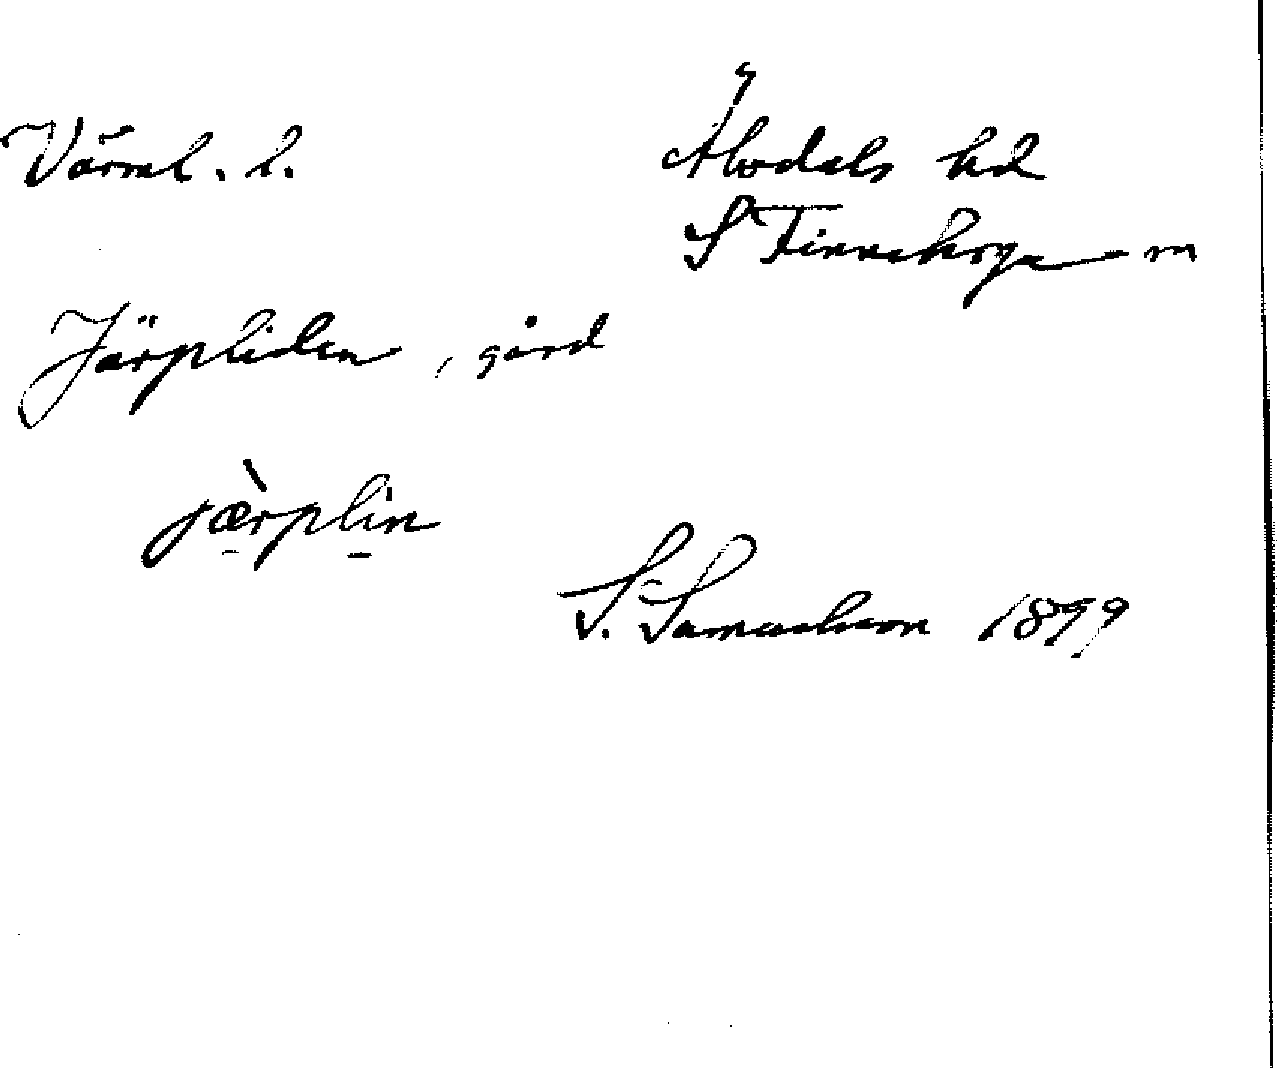 Värml. l.
Älvdals hd
S Finnskoga sn
Järpliden, gård
jæ̀rplin
S. Samuelsson 1899